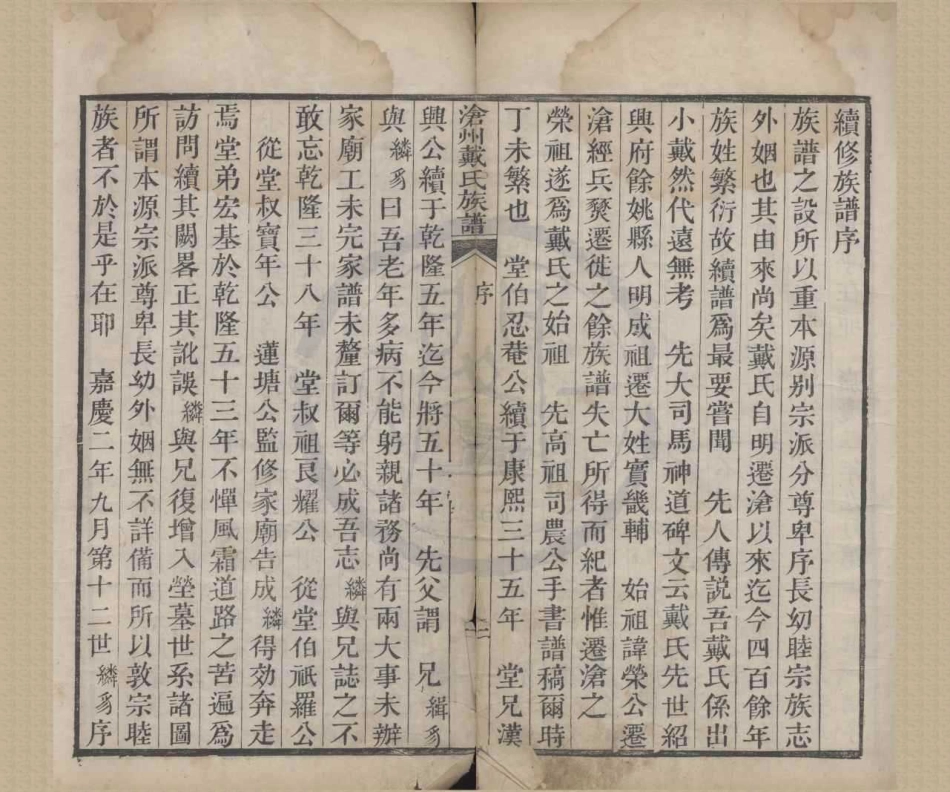 續修族譜序
族譜之設所以重本源別宗派分尊卑序長幼睦宗族志
外姻也其由來尚矣戴氏自明遷滄以來迄今四百餘年
族姓繁衍故續譜爲最要嘗聞 先人傳説吾戴氏係出
小戴然代遠無考 先大司馬神道碑文云戴氏先世紹
興府餘姚縣人明成祖遷大姓實畿輔 始祖諱榮公遷
滄經兵燹遷徙之餘族譜失亡所得而紀者惟遷滄之
榮祖遂爲戴氏之始祖 先高祖司農公手書譜稿爾時
丁未繁也 堂伯忍菴公續于康熙三十五年 堂兄漢
滄州戴氏族譜 序 二
興公續于乾隆五年迄今將五十年 先父謂 兄緝
與 麟 曰吾老年多病不能躬親諸務尚有兩大事未辦
家廟工未完家譜未釐訂爾等必成吾志麟與兄誌之不
敢忘乾隆三十八年 堂叔祖艮耀公 從堂伯祇羅公
從堂叔寶年公 蓮塘公監修家廟告成麟得効奔走
焉堂弟宏基於乾隆五十三年不憚風霜道路之苦遍爲
訪問續其闕畧正其訛誤麟與兄復增入塋墓世系諸圖
所謂本源宗派尊卑長幼外姻無不詳備而所以敦宗睦
族者不於是乎在耶 嘉慶二年九月第十二世麟 序